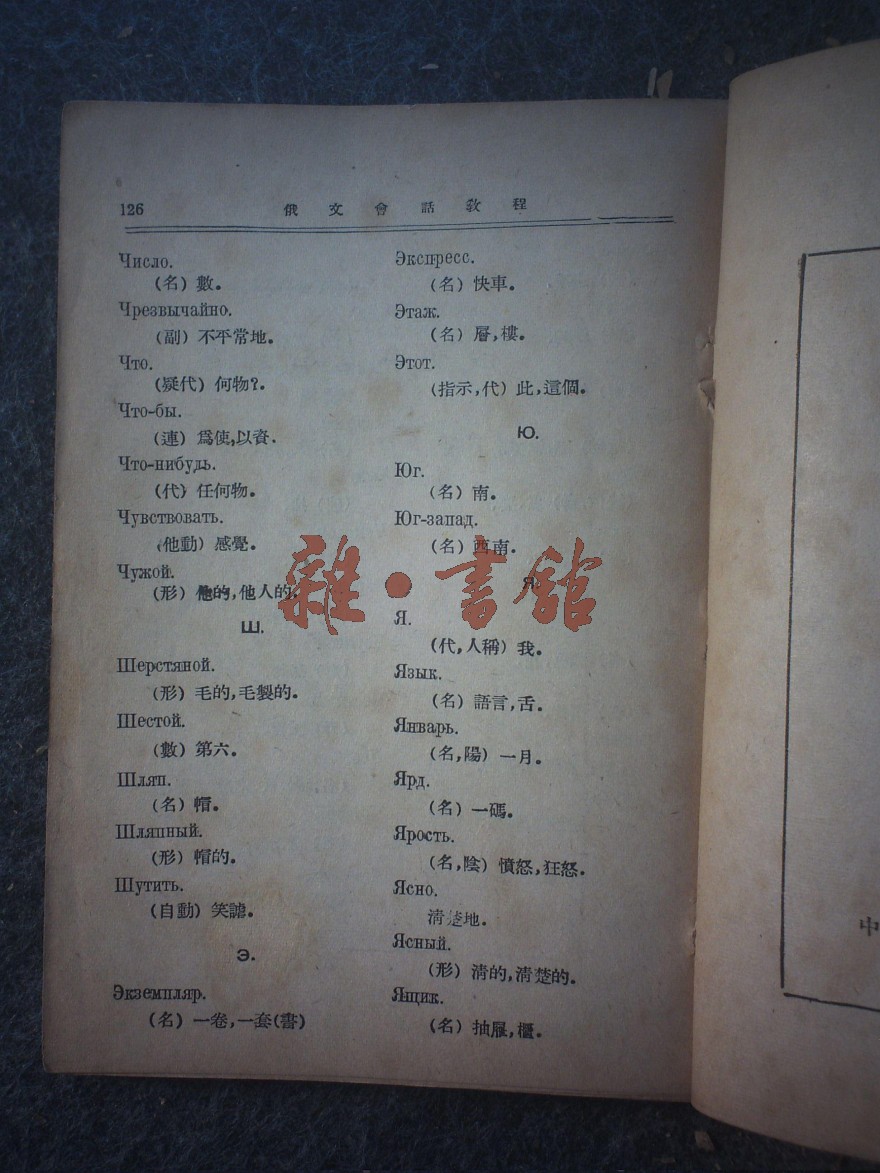 126 俄文會話教程
Число.
(名) 數。
Чрезвычайно.
(副) 不平常地。
Что.
(疑代) 何物?。
Что-бы.
(連) 爲使,以資.
Что-нибудь.
(代) 任何物。
Чувствовать.
(他動) 感覺。
Чужой.
(形) 他的,他人的.
Ш.
Шерстяной.
(形) 毛的,毛製的。
Шестой.
(數) 第六。
Шляп.
(名) 帽。
Шляпный.
(形) 帽的。
Шутить.
(自動) 笑謔。
Э.
Экземпляр.
(名) 一卷,一套(書)
Экспресс.
(名) 快車。
Этаж.
(名) 層,樓。
Этот.
(指示,代) 此,這個。
Ю.
Юг.
(名) 南。
Юг-запад.
(名) 西南。
Я.
Я.
(代,人稱) 我。
Язык.
(名) 語言,舌。
Январь.
(名,陽) 一月。
Ярд.
(名) 一碼。
Ярость.
(名,陰) 憤怒,狂怒.
Ясно.
淸楚地。
Ясный.
(形) 淸的,淸楚的。
Ящик.
(名) 抽屜,櫃。
雜·書館
中